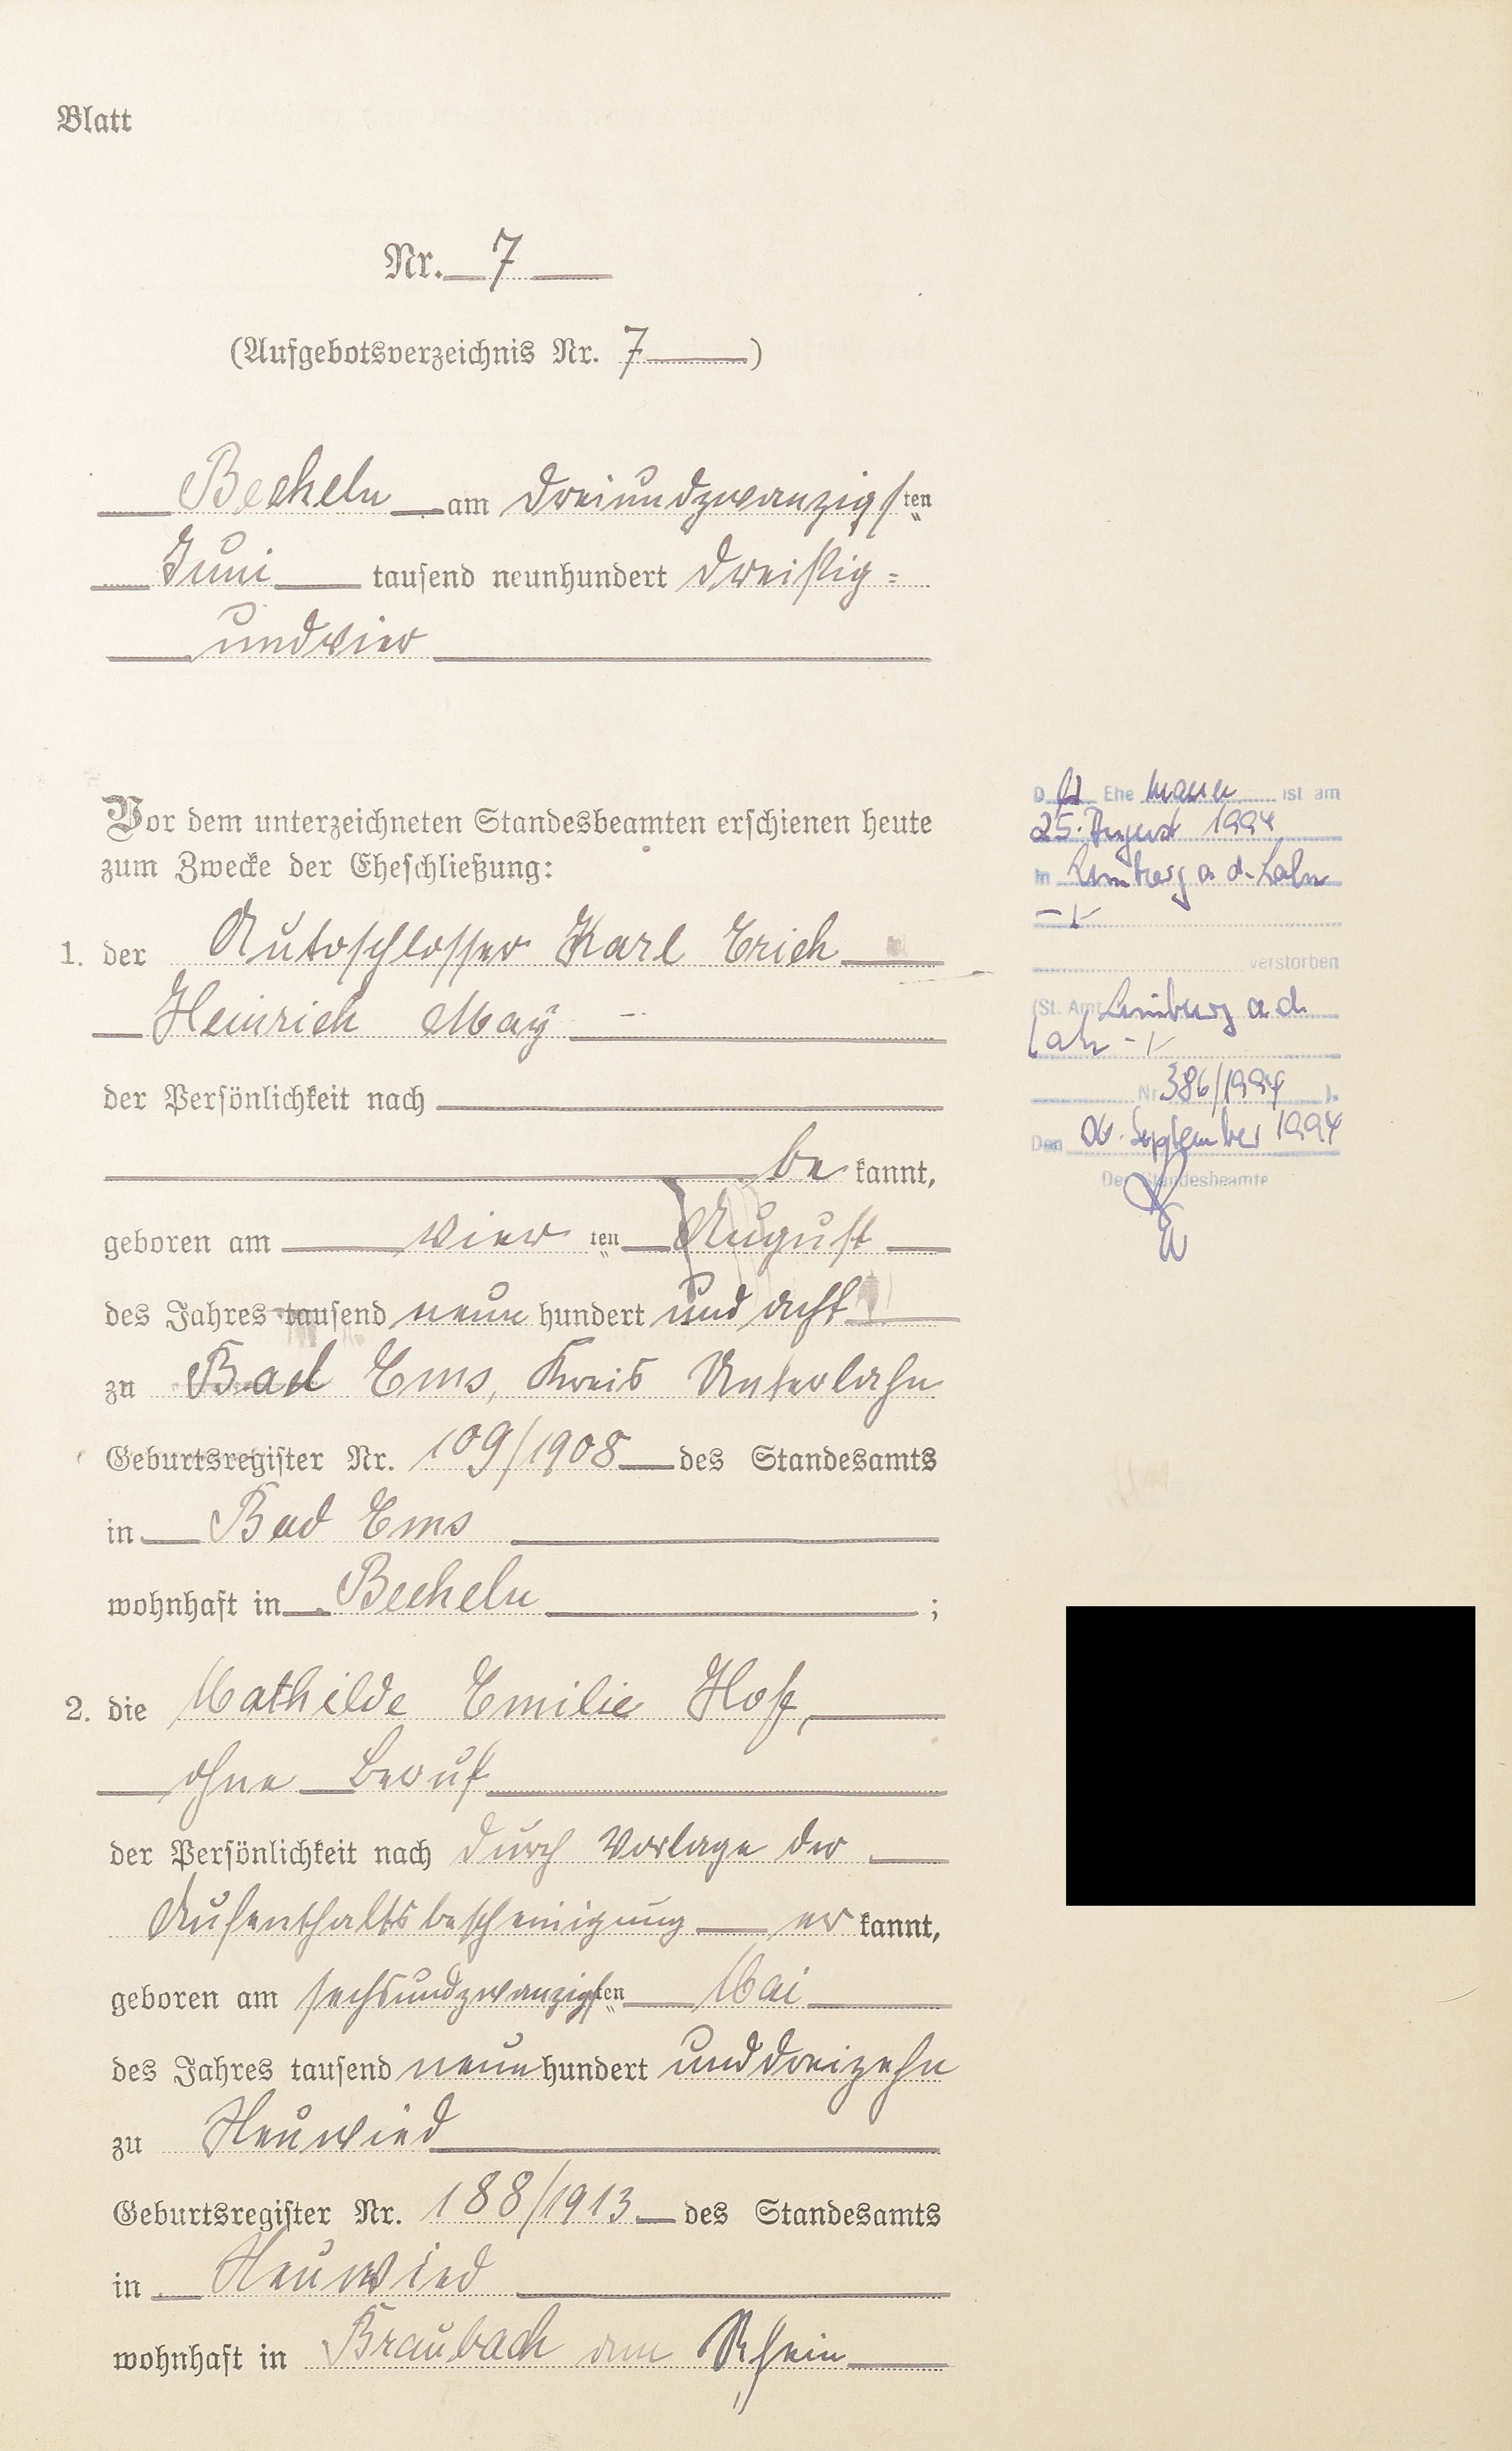 Blatt
Nr. 7
(Aufgebotsverzeichnis Nr. 7)
Becheln am dreiundzwanzigsten
Juni tausend neunhundert dreißig=
undvier
Vor dem unterzeichneten Standesbeamten erschienen heute
zum Zwecke der Eheschließung:
1. der Autoschlosser Karl Erich
Heinrich May
der Persönlichkeit nach
be kannt,
geboren am vier ten August
des Jahres tausend neun hundert und acht
zu Bad Ems, Kreis Unterlahn
Geburtsregister Nr. 109/1908 des Standesamts
in Bad Ems
wohnhaft in Becheln ;
2. die Mathilde Emilie
ohne Beruf
der Persönlichkeit nach durch Vorlage der
Aufenthaltsbescheinigung er kannt,
geboren am sechsundzwanzigsten Mai
des Jahres tausend neun hundert und dreizehn
zu Neuwied
Geburtsregister Nr. 188/1913 des Standesamts
in Neuwied
wohnhaft in Braubach am Rhein
Der Ehe mann ist am
25. August 1994
in Limburg a d. Lahn
verstorben
(St. Amt Limburg a d
Lahn
Nr. 386/1994 ).
Den September 1994
Der Standesbeamte